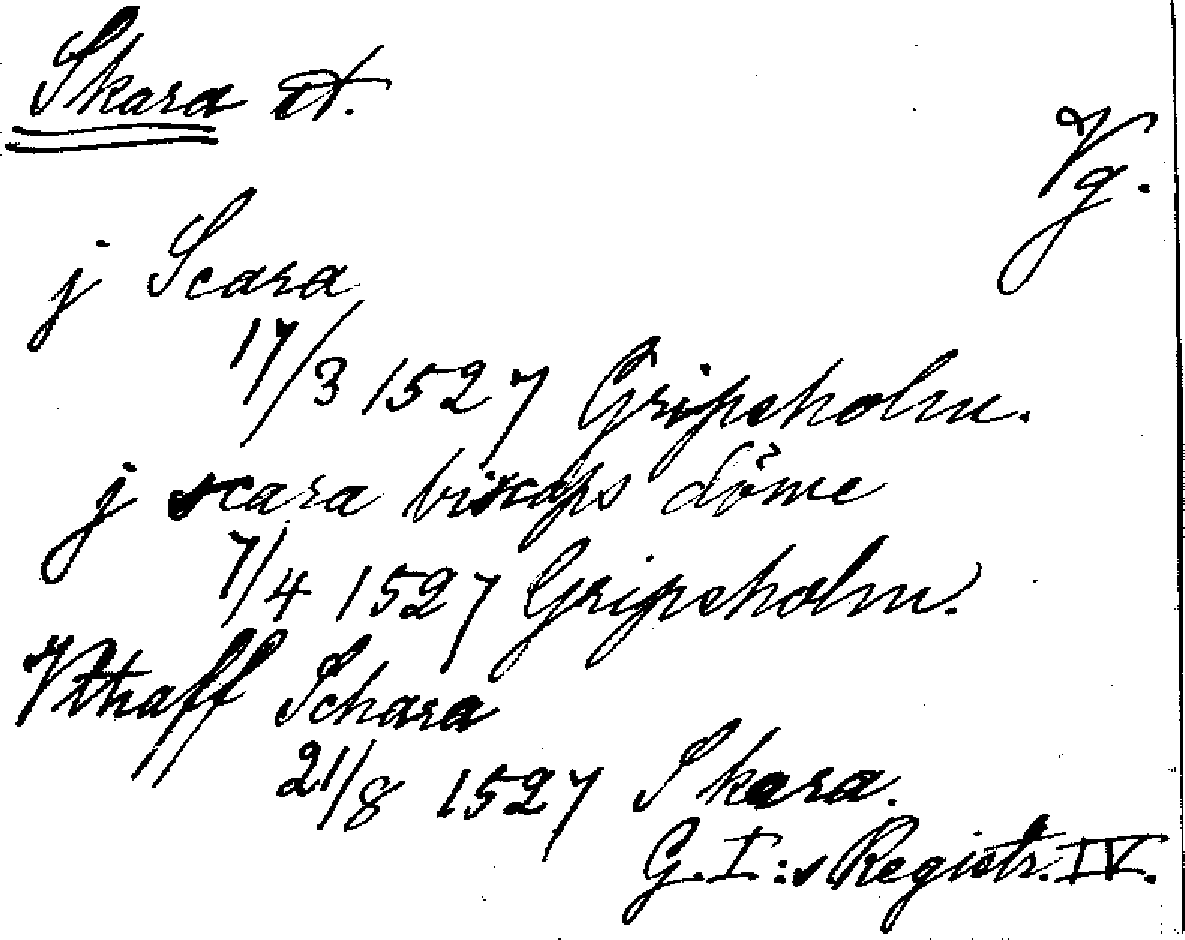 Skara st.
Vg.
j Scara
17/3 1527 Gripsholm.
j scara biscops döme
7/4 1527 Gripsholm.
Vthaff Schara
21/8 1527 Skara.
G. I:s Registr. IV.